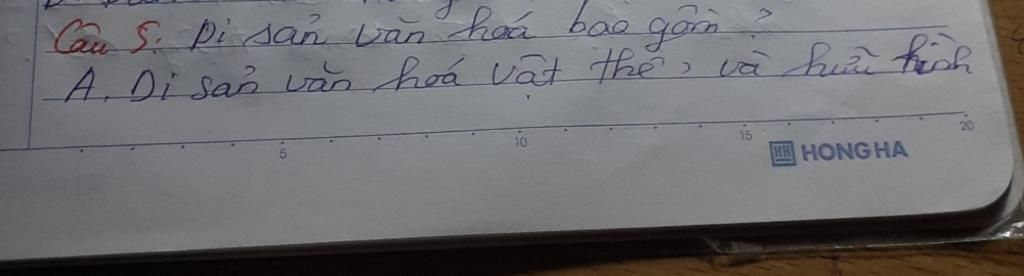 Câu 5: Di sản văn hoá bao gồm?
A. Di sản văn hoá vật thể, và hữu hình
5 10 15 20
HH HONG HA